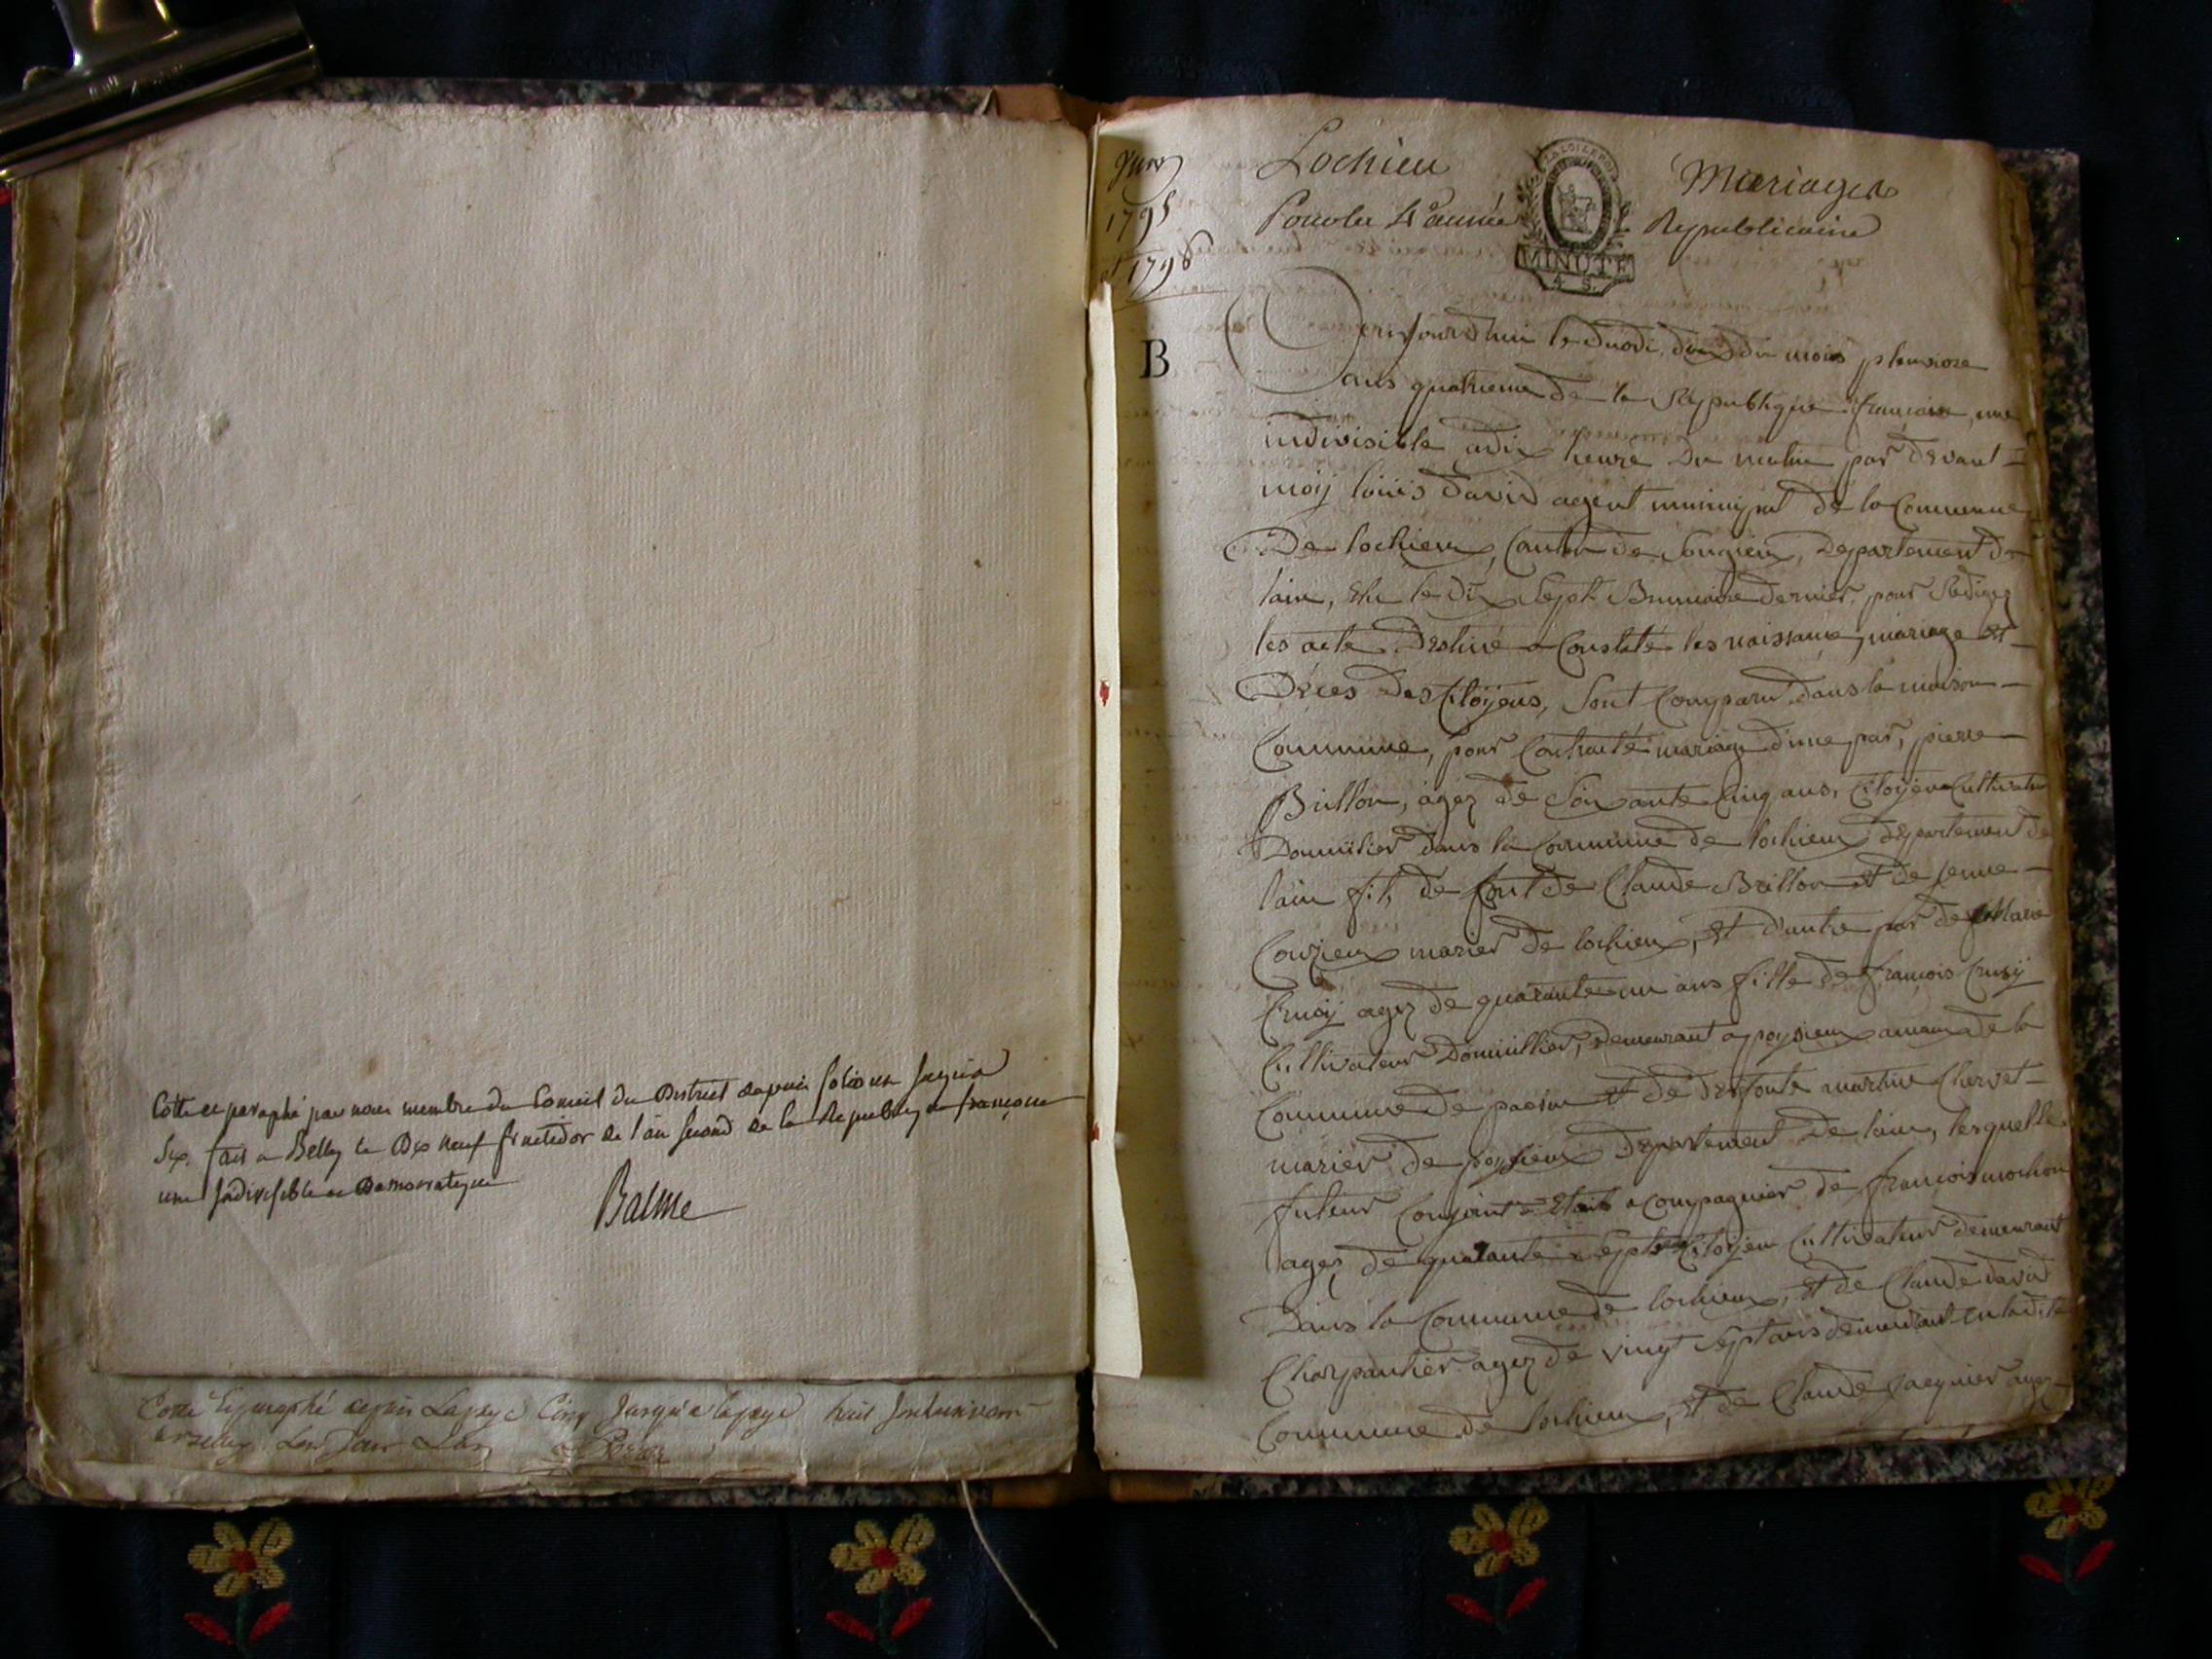 Cotté et paraphé par nous membre du Conseil du District depuis folio un jusqu'à
Six. fait a Belley le Dix neuf fructidor de l'an second de la Republique françoise
une Indivisible et Democratique
Balme
Cotté et paraphé depuis La page Cinq Jusqu'a la page huit
1795
et 1796
B
Lochieu
Mariages
Pour la 4e année
Republicaine
LA LOI LE ROI
MINUTE
4 S.
aujourdhui le duodi, deux du mois pluviose
ans quatrieme de la Republique francaise, une
indivisible a dix heure du matin par devant
moy loüis david agent municipal de la Commune
De lochieux, Canton de Songieux, Departement de
lain, Elu le dix Sept Brumaire dernier, pour Rediger
les acte Destiné a Constaté les naissance, mariage et
Déces Des Citoÿens, Sont Comparu dans la maison
Commune, pour Contracté mariage d'une par, pierre
Brillon, agez de Soixante Cinq ans, Citoÿen Cultivateur
Domicilier dans la Commune de lochieux departement de
lain fils de de Claude Brillon et de jenne
marier de lochieux, et d'autre par de Marie
Crusÿ agez de quarante un ans fille de francois Crusÿ
Cultivateur Domicillier, demeurant a poysieux de la
Commune de et de deffunte martine Chervet
marier de poysieux Departement de lain, lesquelle
futeur Conjoint Etant acompagnier de francois mochon
agez de quarante Sept Citoÿen Cultivateur demeurant
Dans la Commune de lochieux, et de Claude david
Charpantier agez de vingt Sept ans demeurant en la dite
Commune de lochieux, et de Claude jacquier agez